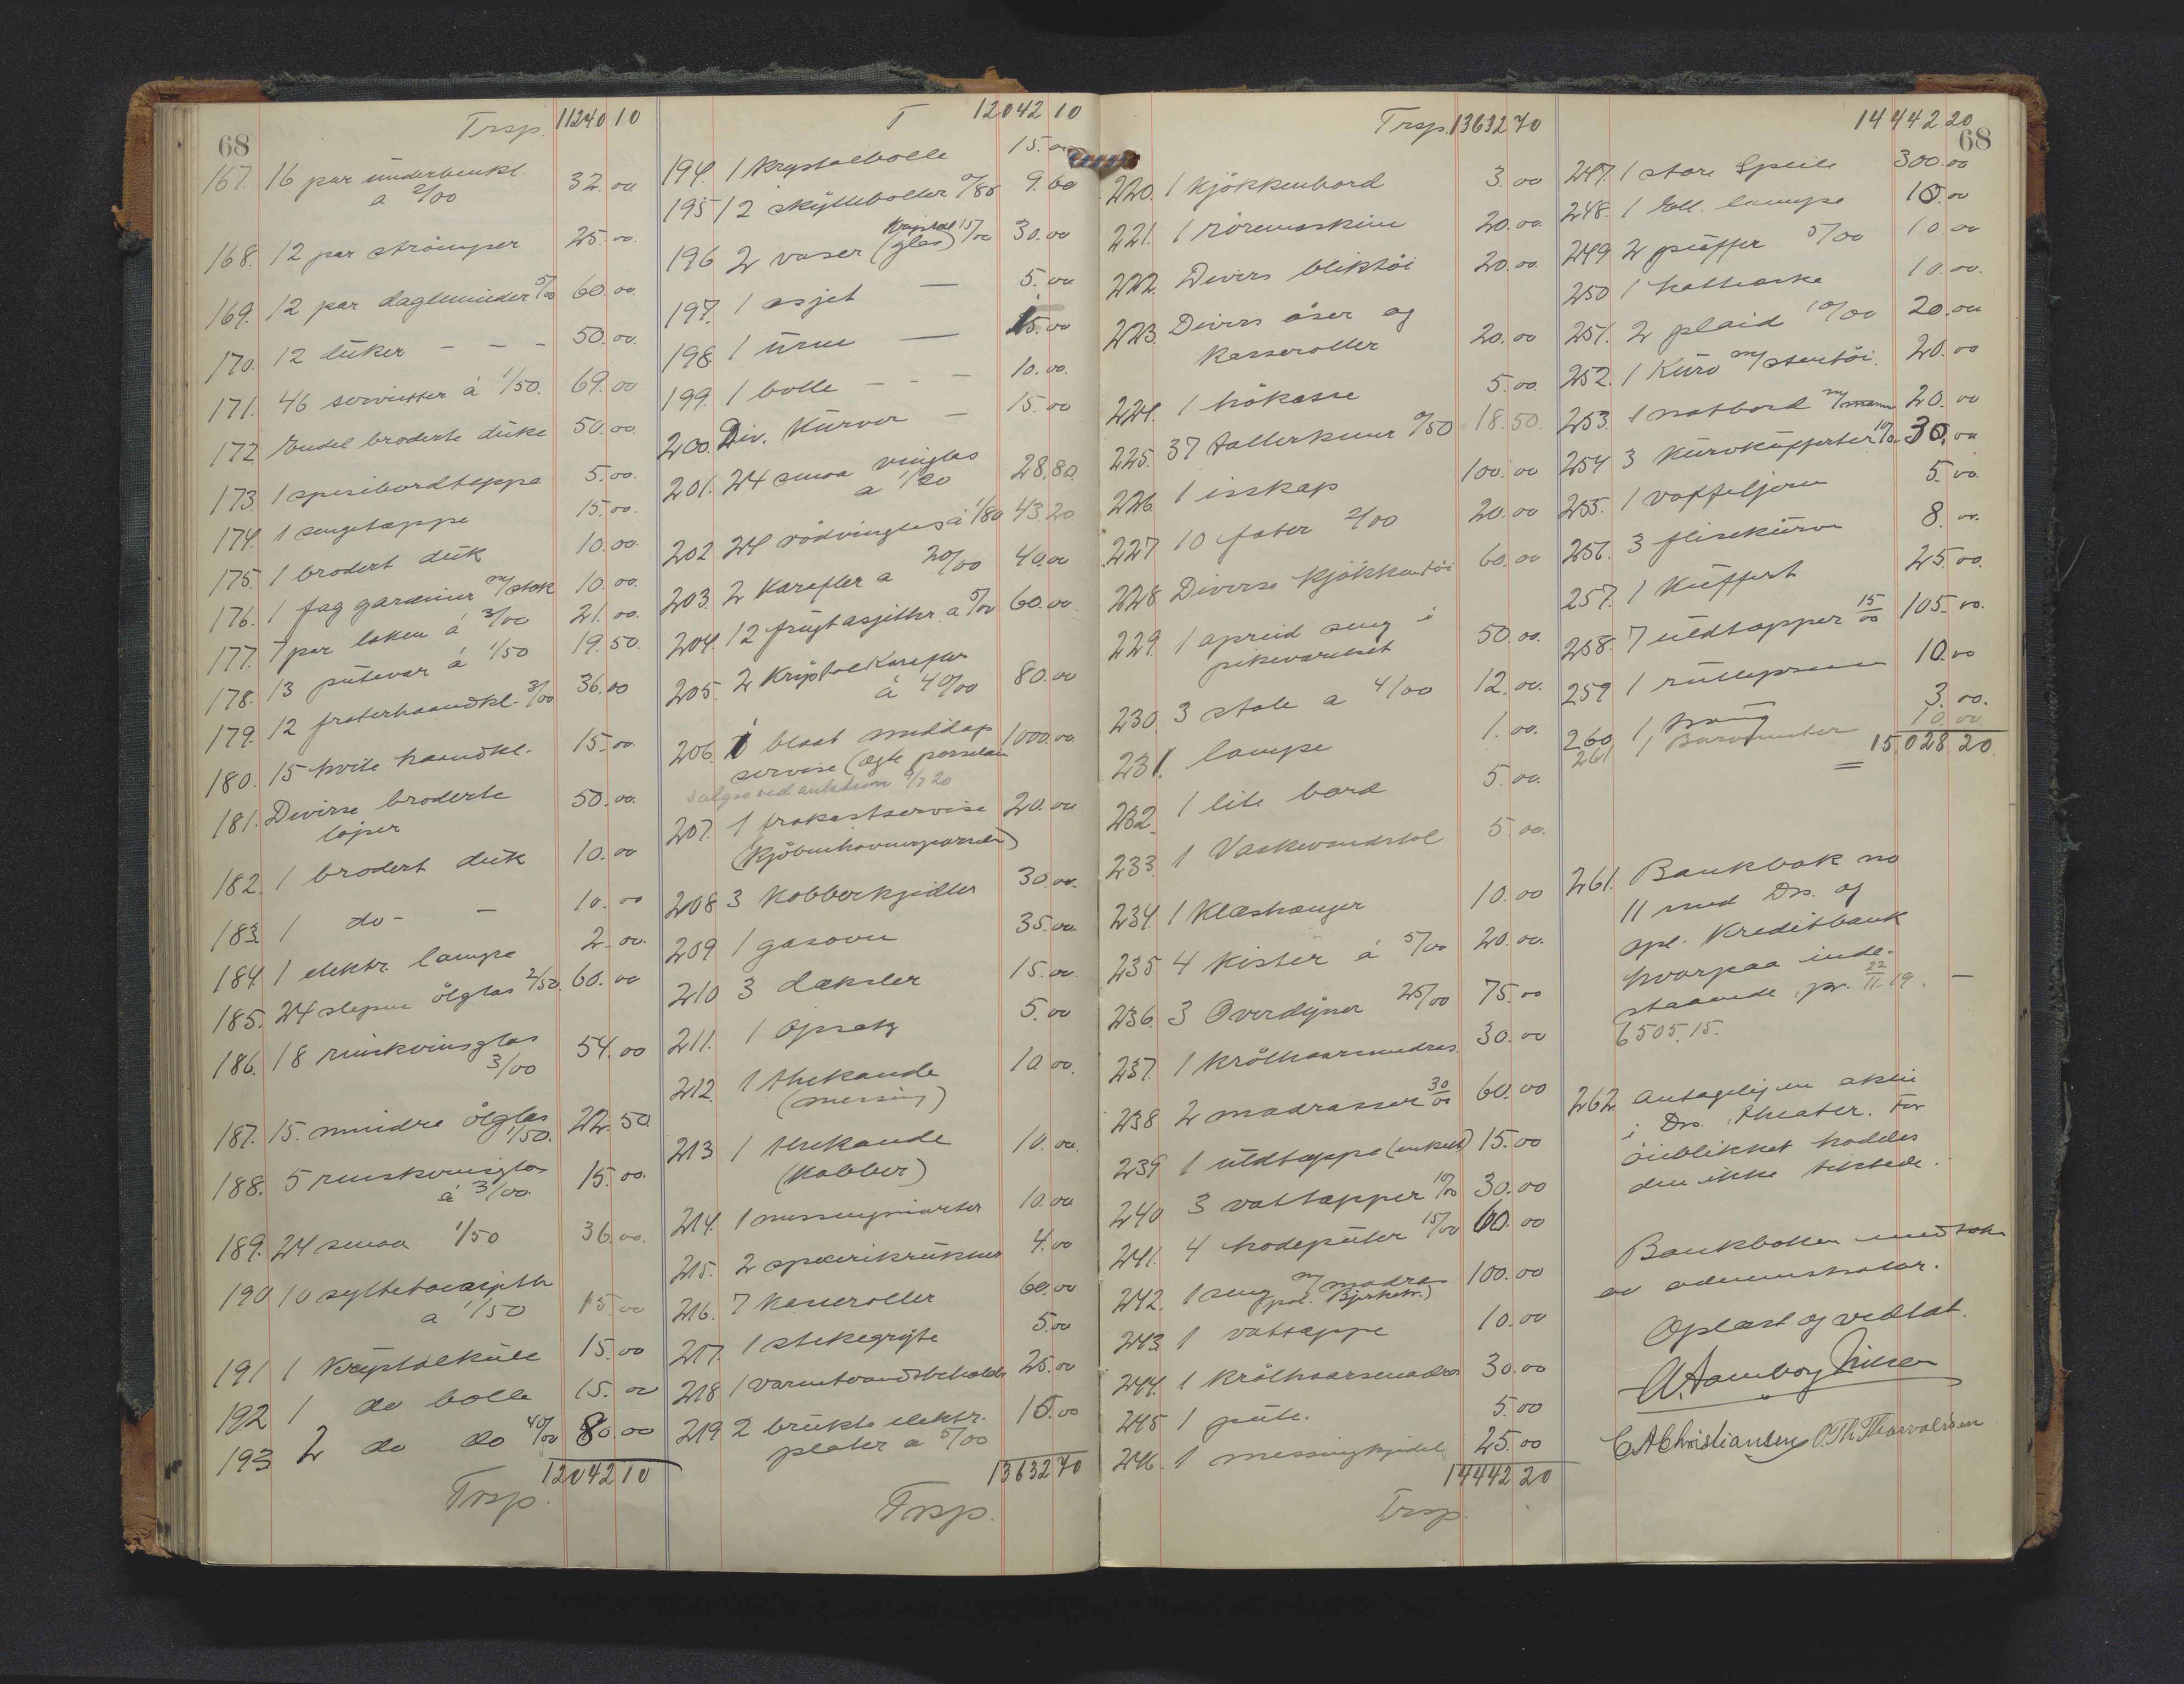 68
Trsp. 11240 10
167. 16 par underbenkl.
a 2/00 32.00
168. 12 par strömper 25.00.
169. 12 par daglinnider 5/00 60.00.
170. 12 duker - - - 50.00.
171. 46 servietter á 1/50. 69.00
172 Endel broderte duke 50.00.
173. 1 spisebordteppe 5.00.
174. 1 sengetæppe 15.00.
175. 1 brodert duk 10.00.
176. 1 fag gardiner m/stok 10.00.
177. 7 par laken á 3/00 21.00.
178. 13 putevar á 1/50 19.50.
179. 12 froterhaandkl. 3/00 36.00
180. 15 hvite haandkl. 15.00.
181. Diverse broderte
løper 50.00.
182. 1 brodert duk 10.00
183. 1 do - - 10.00
184. 1 elektr. lampe 2.00.
185. 24 slepne ölglas 2/50. 60.00
186. 18 rinskvinsglas
3/00 54.00
187. 15. mindre ölglas
1/50. 22.50.
188. 5 rinskvinsglas
á 3/00. 15.00.
189. 24 smaa 1/50 36.00.
190 10 syltetøiasjetter
a 1/50 15.00
191 1 Krystalkule 15.00
192 1 do bolle 15.00
193 2 do do 40/00 80.00
12042 10
Trsp.
T 12042 10
194. 1 Krystalbolle 15.00
195 12 skylleboller 0/80 9.60
196 2 vaser (Krystal glas) 15/00 30.00
197. 1 asjet — 5.00
198 1 urne — 15.00
199. 1 bolle - - - 10.00.
200. Div. Kurver - 15.00
201. 24 smaa vinglas
a 1/20 28.80.
202 24 rödvinglas á 1/80 43.20
203. 2 Karafler a 20/00 40.00
204. 12 frugtasjetter a 5/00 60.00
205. 2 Krystal Karafler
á 40/00 80.00
206. 1 blaat middap
servise (ægte porselæn 1000.00
salges ved auktion 9/7 20
207. 1 frokostservise 20.00
(Kjöbenhavnerporselæn)
208 3 Kobberkjedler 30.00.
209 1 gasovn 35.00.
210 3 dæksler 15.00.
211. 1 Opsats 5.00
212. 1 thekande
(messing) 10.00.
213 1 thekande
(Kobber) 10.00.
214. 1 messingmorter 10.00
215. 2 spæcerikrukker 4.00
216. 7 Kasseroller 60.00
217. 1 stekegryte 5.00
218 1 varmtvandsbeholder 25.00
219 2 brukte elektr.
plater a 5/00 10.00
13632 70
Trsp.
Trsp. 13632 70
220. 1 Kjökkenbord 3.00
221. 1 röremaskine 20.00.
222. Divers bliktöi 20.00.
223. Divers øser og
Kasseroller 20.00
224. 1 hökasse 5.00.
225. 37 tallerkner 0/50 18.50.
226. 1 isskap 100.00
227 10 fater 2/00 20.00
228 Diverse Kjökkentöi 60.00
229. 1 opreid seng i
pikeværelset 50.00.
230. 3 stole a 4/00 12.00.
231. lampe 1.00.
232. 1 lite bord 5.00.
233. 1 Vaskevandstol 5.00.
234. 1 Klæshænger 10.00
235 4 Kister á 5/00 20.00.
236. 3 Overdyner 25/00 75.00
237. 1 Krølhaarsmadras. 30.00
238 2 madrasser 30/00 60.00
239. 1 uldtæppe (enkelt) 15.00
240 3 vattæpper 10/00 30.00
241. 4 hodeputer 15/00 60.00
242. 1 seng m/madras
(pol. Bjerketr.) 100.00
243. 1 vattæppe 10.00
244. 1 Krølhaarsmadras 30.00
245 1 pute. 5.00
246. 1 messingkjedel 25.00
14442 20
Trsp.
14442 20
68
247. 1 store Speile 300.00
248. 1 Ell. lampe 10.00
249 2 puffer 5/00 10.00
250 1 hatteæske 10.00.
251. 2 plaid 10/00 20.00
252. 1 Kurv m/stentöi. 20.00
253. 1 natbord m/marm 20.00
254 3 Kurvkufferter 10/00 30.00
255. 1 vaffeljern 5.00
256. 3 flisekurve 8.00.
257. 1 Kuffert 25.00.
258. 7 uldtæpper 15/00 105.00.
259 1 rullepresse 10.00
260 1 3.00.
261 1 Barometer 10.00.
15,028 20.
261. Bankbok no
11 med Drs. og
opl. Kreditbank
hvorpaa inde-
staaende pr. 22/11 19. -
6505.15.
262 Antagelig en aktie
i Drs. theater. For
øieblikket hadles
den ikke tilstede.
Bankboken medtok
av administrator.
Oplæst og vedtat.
C A Christiansen O. Th. Thorvaldsen